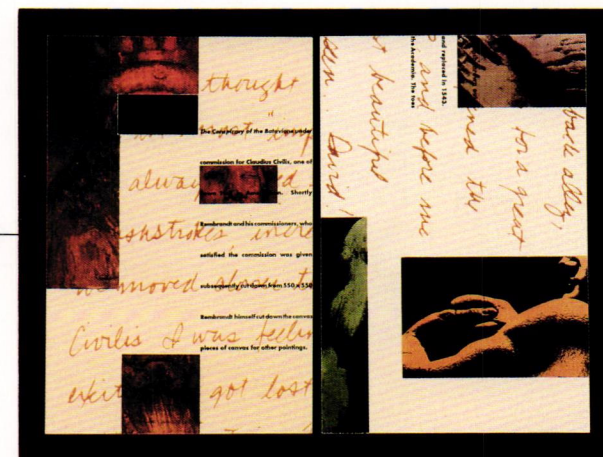 thought
The Conspiracy of the Batavians under
commission for Claudius Civilis, one of
alway
Shortly
Rembrandt and his commissioners, who
satisfied the commission was given
moved closer t
subsequently cut down from 550 x 550
Rembrandt himself cut down the canvas
Civilis I was feelin
pieces of canvas for other paintings.
exit got lost
and replaced in 1543.
the Academia. The toes
and before me
t beautiful
David
back alley,
for a great
ned the